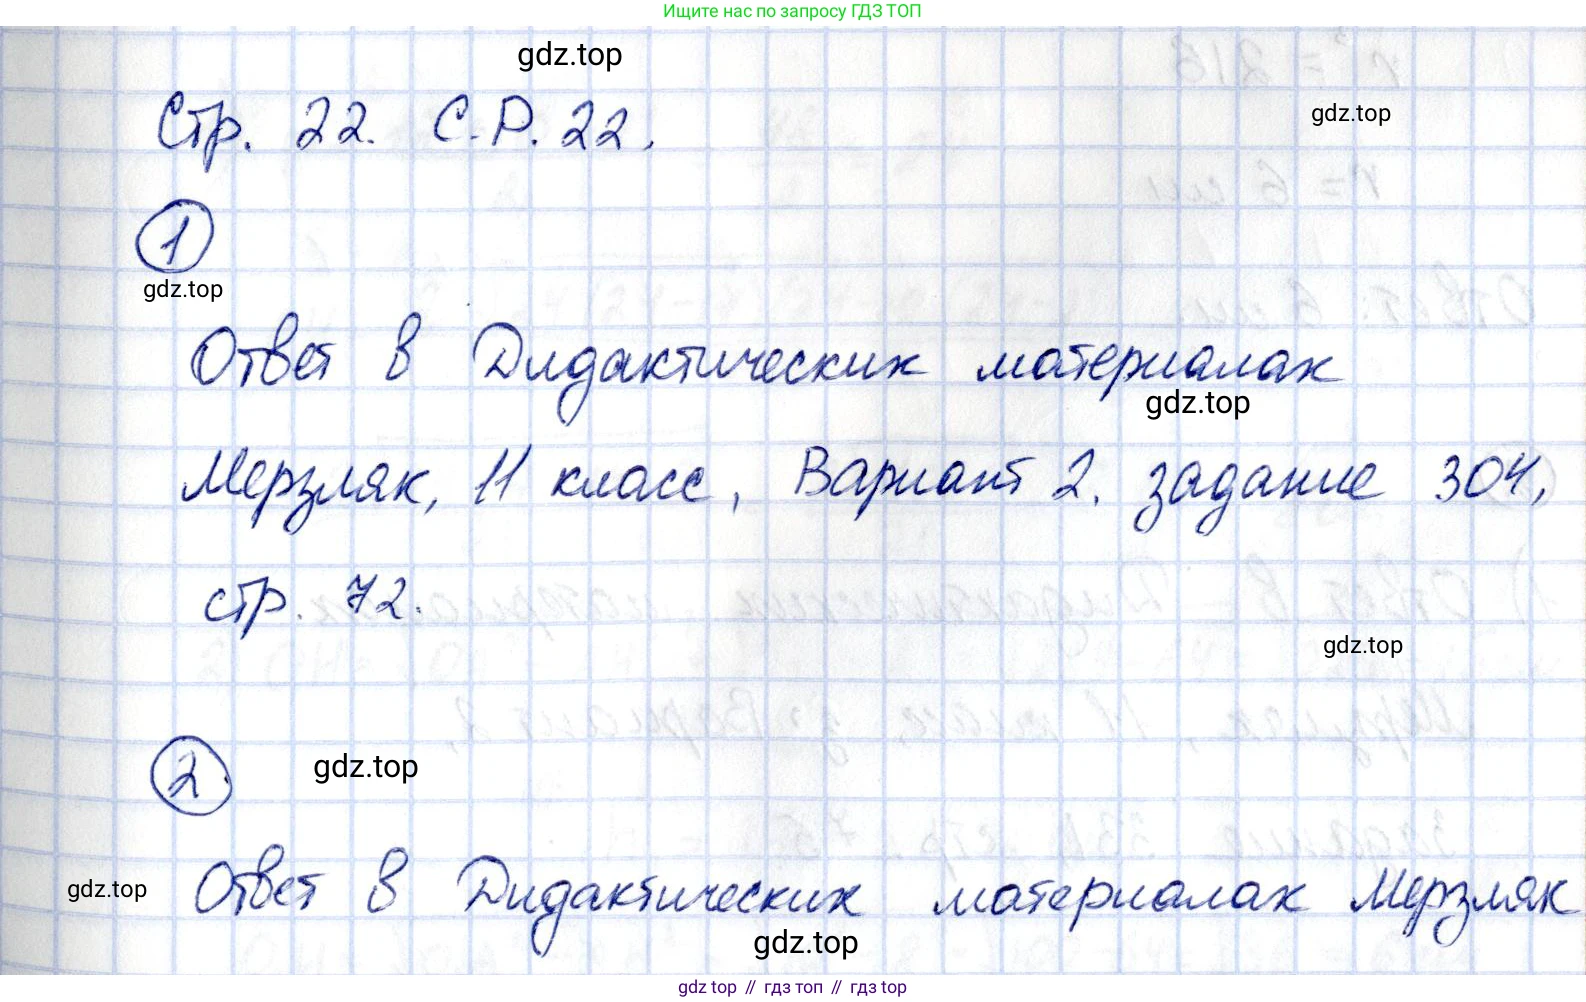 Ищите нас по запросу ГДЗ ТОП
gdz.top
Стр. 22. С.Р. 22.
gdz.top
1
gdz.top
Ответ в Дидактических материалах
gdz.top
Мерзляк, 11 класс, Вариант 2. задание 304,
стр. 72.
gdz.top
2
gdz.top
Ответ в Дидактических материалах Мерзляк
gdz.top
gdz.top
gdz.top // гдз топ // гдз top